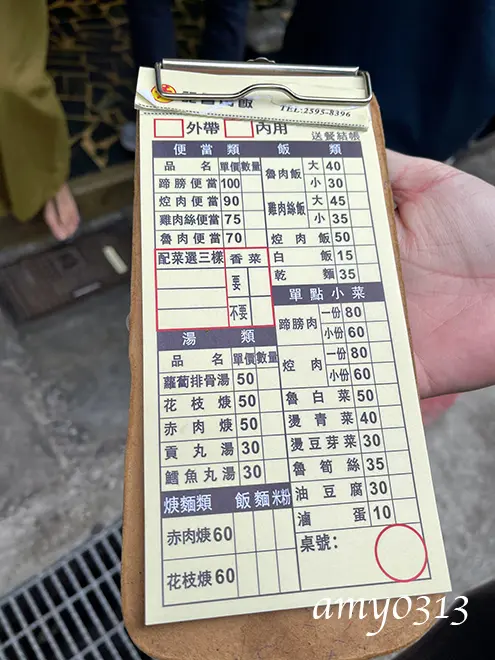 TEL:2595-8396
外帶 內用 送餐結帳
便當類
品名 單價 數量
蹄膀便當 100
焢肉便當 90
雞肉絲便當 75
魯肉便當 70
配菜選三樣 香菜
要
不要
湯類
品名 單價 數量
蘿蔔排骨湯 50
花枝焿 50
赤肉焿 50
貢丸湯 30
鱈魚丸湯 30
焿麵類 飯 麵 米粉
赤肉焿 60
花枝焿 60
飯類
魯肉飯 大 40
小 30
雞肉絲飯 大 45
小 35
焢肉飯 50
白飯 15
乾麵 35
單點小菜
蹄膀肉 一份 80
小份 60
焢肉 一份 80
小份 60
魯白菜 50
燙青菜 40
燙豆芽菜 30
魯筍絲 35
油豆腐 30
滷蛋 10
桌號:
amy0313